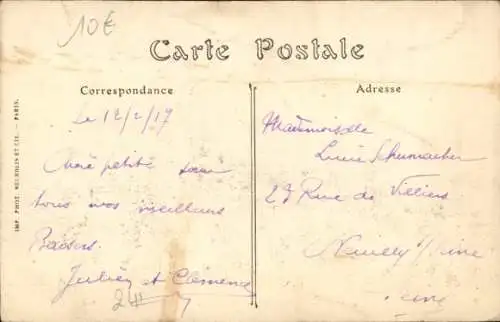 10€
Carte Postale
Correspondance
Adresse
IMP. PHOT. NEURDEIN ET CIE. — PARIS.
Le 12/2/17
Chère petite soeur
tous nos meilleurs
Baisers.
Julien et Clémence
Mademoiselle
Lucie Schumacher
27 Rue de Villiers
Neuilly s/Seine
Seine